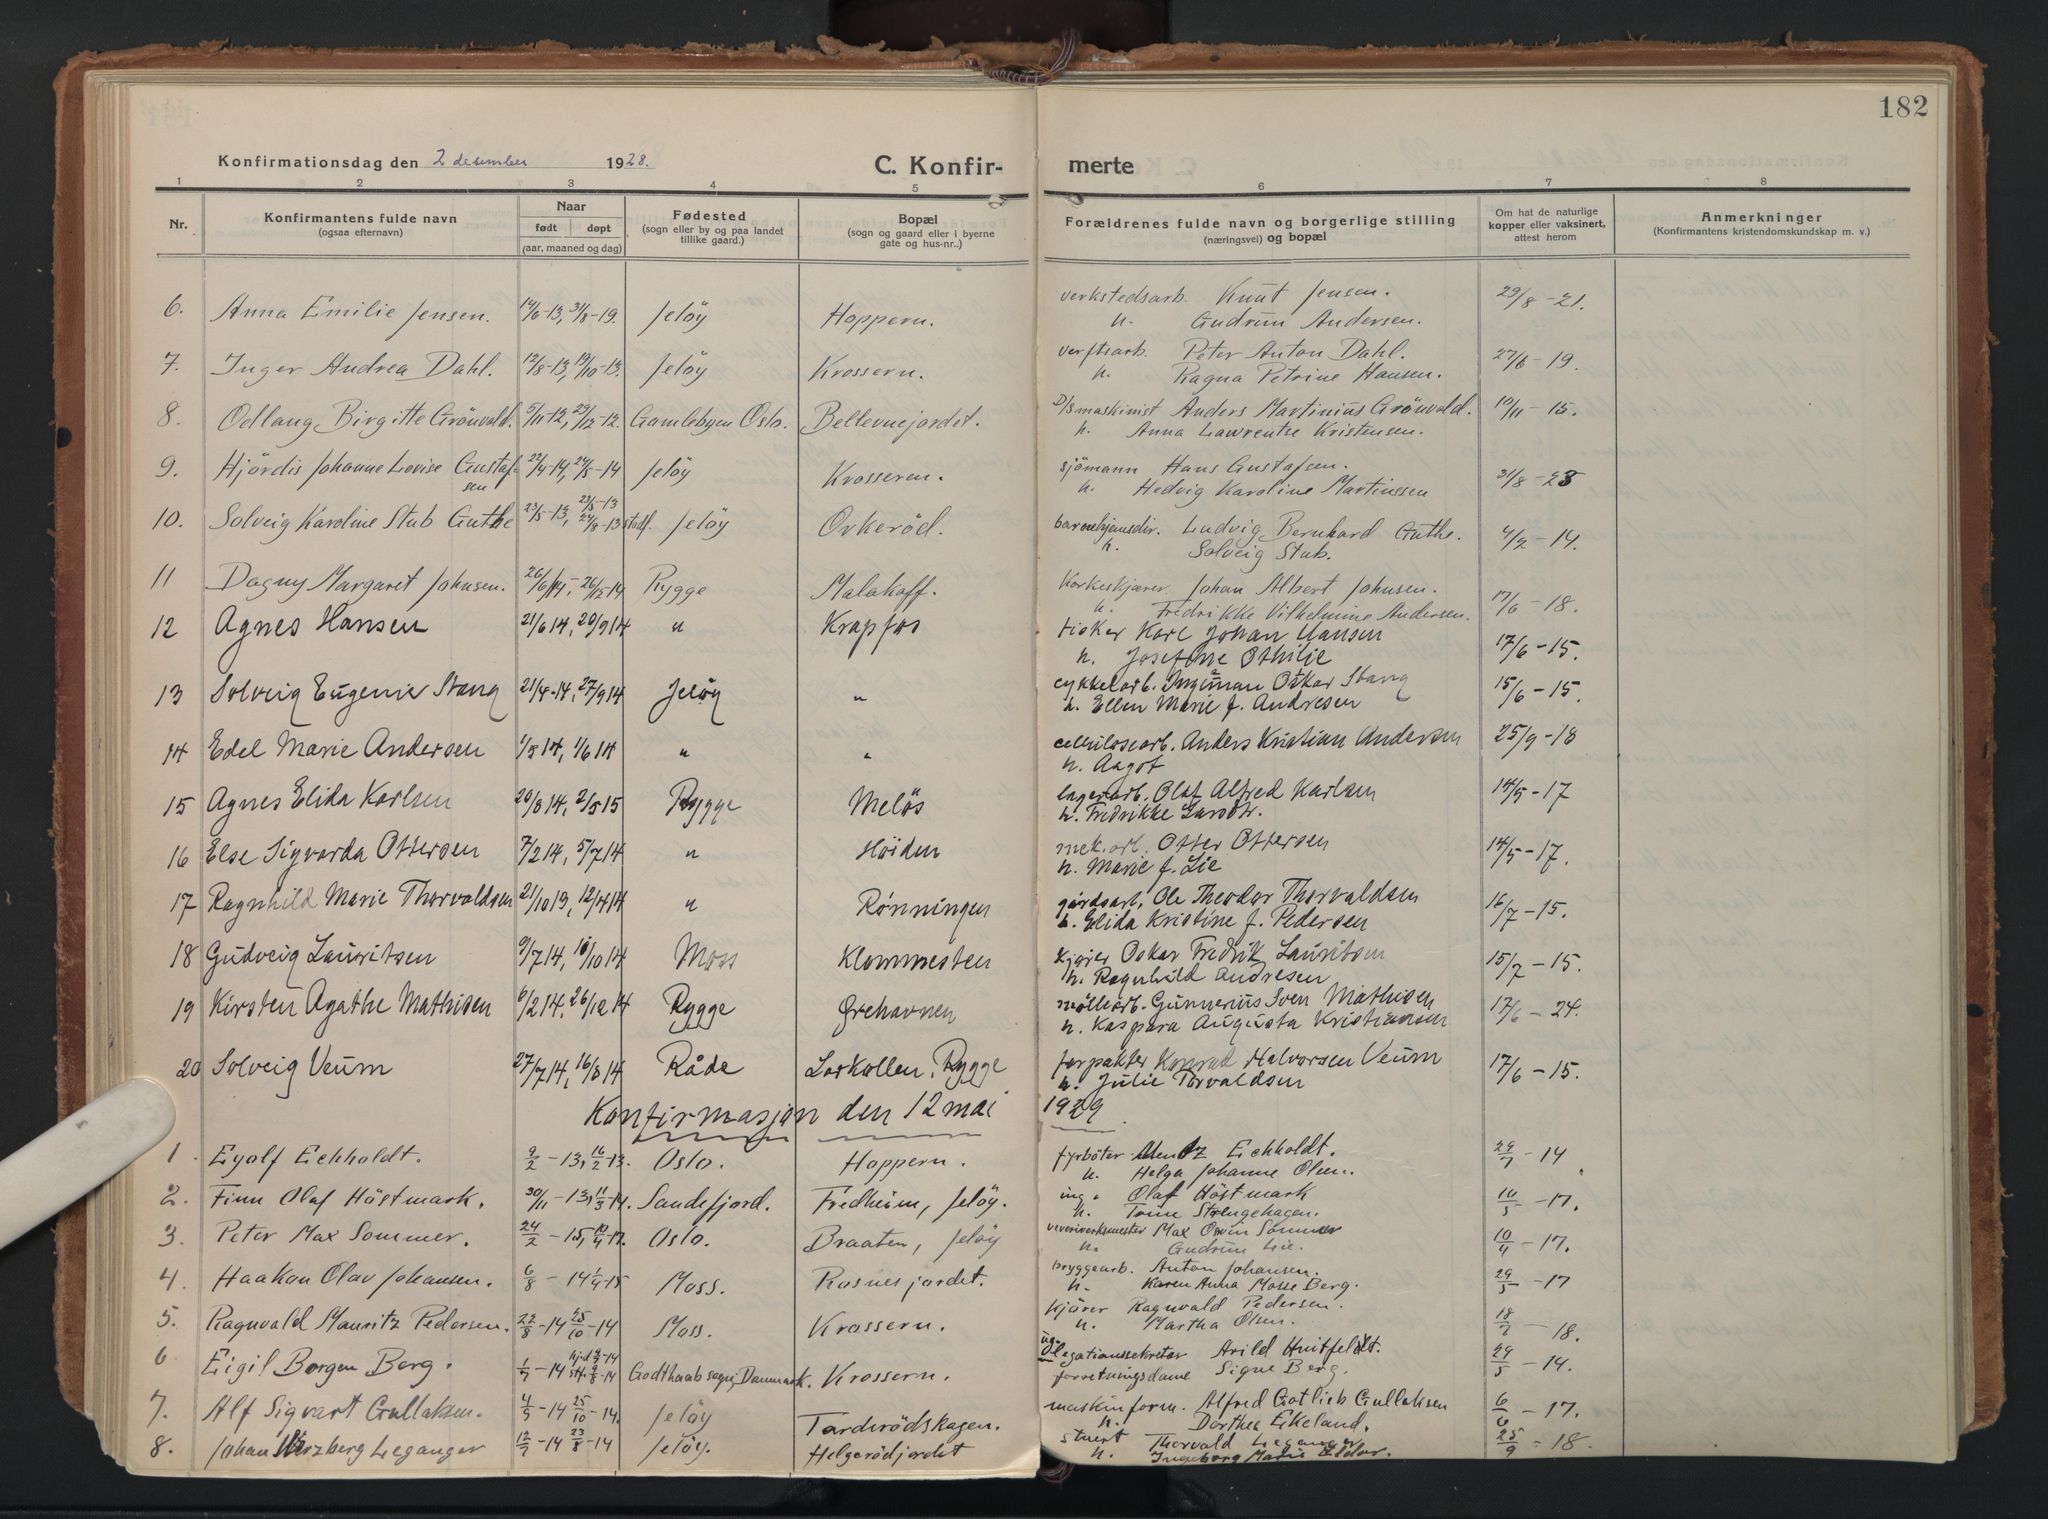 182
Konfirmationsdag den 2 desember 1928. C. Konfir- merte
1 2 3 4 5 6 7 8
Nr. Konfirmantens fulde navn (ogsaa efternavn) Naar født døpt (aar, maaned og dag) Fødested (sogn eller by og paa landet tillike gaard.) Bopæl (sogn og gaard eller i byerne gate og hus-nr..) Forældrenes fulde navn og borgerlige stilling (næringsvei) og bopæl Om hat de naturlige kopper eller vaksinert, attest herom Anmerkninger (Konfirmantens kristendomskundskap m. v.)
6. Anna Emilie Jensen. 14/6-13, 31/8-19. Jelöy Hoppern. verkstedsarb. Knut Jensen. 29/8-21.
h. Gudrun Andersen.
7. Inger Andrea Dahl. 12/8-13, 19/10-13. Jelöy Krossern. verftsarb. Peter Anton Dahl. 27/6-19.
h. Ragna Petrine Hansen.
8. Odlaug Birgitte Grönvald. 5/11-12, 29/12-12. Gamlebyen Oslo. Bellevuejordet. D/Smaskinist Anders Martinius Grönvald. 10/11-15.
h. Anna Lawrentse Kristensen.
9. Hjördis Johanne Lovise Gustafsen 22/4-14, 24/5-14 Jelöy Krosseren. sjömann Hans Gustafsen. 31/8-28
h. Hedvig Karoline Martinssen
10. Solveig Karoline Stub Guthe 23/5-13, 23/5-13 24/8-13 stadf. Jelöy Orkeröd. Ludvig Bernhard Guthe. 4/2-14.
h. Solveig Stub.
11 Dagny Margaret Johnsen. 26/6 14, 26/12-14 Rygge Malakoff. Korkeskjærer Johan Albert Johnsen. 17/6-18.
h. Fredrikke Vilhelmine Andersen.
12 Agnes Hansen 21/6 14, 20/9 14 " Krapfos fisker Karl Johan Hansen 17/6-15.
h. Josefine Othilie
13 Solveig Eugenie Stang 21/4-14, 27/9 14 Jeløy " cykkelarb. Ingeman Oskar Stang 15/6-15.
h. Ellen Marie f. Andresen
14 Edel Marie Andersen 1/3 14, 1/6 14 " " cellulosearb. Anders Kristian Andersen 25/9-18
h. Aagot
15 Agnes Elida Karlsen 20/8 14, 2/5 15 Rygge Melös lagerarb. Olaf Alfred Karlsen 14/5-17
h. Fredrikke Larsdtr.
16 Else Sigvarda Ottersen 7/2 14, 5/7 14 " Höiden mek. arb. Otter Ottersen 14/5-17.
h. Marie f. Lie
17 Ragnhild Marie Thorvaldsen 21/10 13, 12/4 14 " Rønningen gårdsarb. Ole Theodor Thorvaldsen 16/7-15.
h. Elida Kristine f. Pedersen
18 Gudveig Lauritsen 9/7 14, 18/10 14 Moss Klommesten kjører Oskar Fredrik Lauritsen 15/7-15.
h. Ragnhild Andresen
19 Kirsten Agathe Mathisen 6/2 14, 26/12 14 Rygge Ørehavnen mölleårb. Gunnerius Sven Mathisen 17/6-24.
h. Kaspara Augusta Kristiansen
20 Solveig Veum 27/7 14, 16/8 14 Råde Larkollen, Rygge forpakter Konrad Halvorsen Veum 17/6-15.
h. Julie Torvaldsen
Konfirmasjon den 12 mai 1929.
1. Eyolf Eichholdt. 9/2-13, 16/2-13. Oslo. Hoppern. fyrböter Mentz Eichholdt. 29/7-14
h. Helga Johanne Olsen.
2. Finn Olaf Höstmark. 30/11-13, 11/3-14. Sandefjord. Fredheim, Jelöy. ing. Olaf Höstmark 10/5-17.
h. Trine Strengehagen.
3. Peter Max Sommer. 24/2-15, 10/4-17. Oslo. Braaten, Jelöy veverimester Max Orvin Sommer 10/4-17.
h. Gudrun Lie.
4. Haakon Olav Johansen. 6/8-14 1/4-15 Moss. Rosnesjordet. bryggearb. Anton Johansen. 29/5-17
h. Karen Anna Mosse Berg.
5. Ragnvald Mauritz Pedersen. 22/8-14 25/10-14 Moss. Krossern. kjörer Ragnvald Pedersen. 18/7-18.
h. Martha Olsen.
6 Eigil Borgen Berg. 1/7-14 Godthaab sogn, Danmark. Krossern. ug. legationssekretær Arild Huitfeldt. 29/5-14.
forretningsdame Signe Berg.
7. Alf Sigvart Gullaksen. 4/9-14 25/10-14. Jelöy Tarderödskagen. maskinform. Alfred Gotlieb Gullaksen 6/6-17.
h. Dorthea Eikeland.
8. Johan Herzberg Leganger 12/7-14 23/8-14 Jelöy. Helgerödjordet stuert Thorvald Leganger 25/9-18.
h. Ingeborg Marie